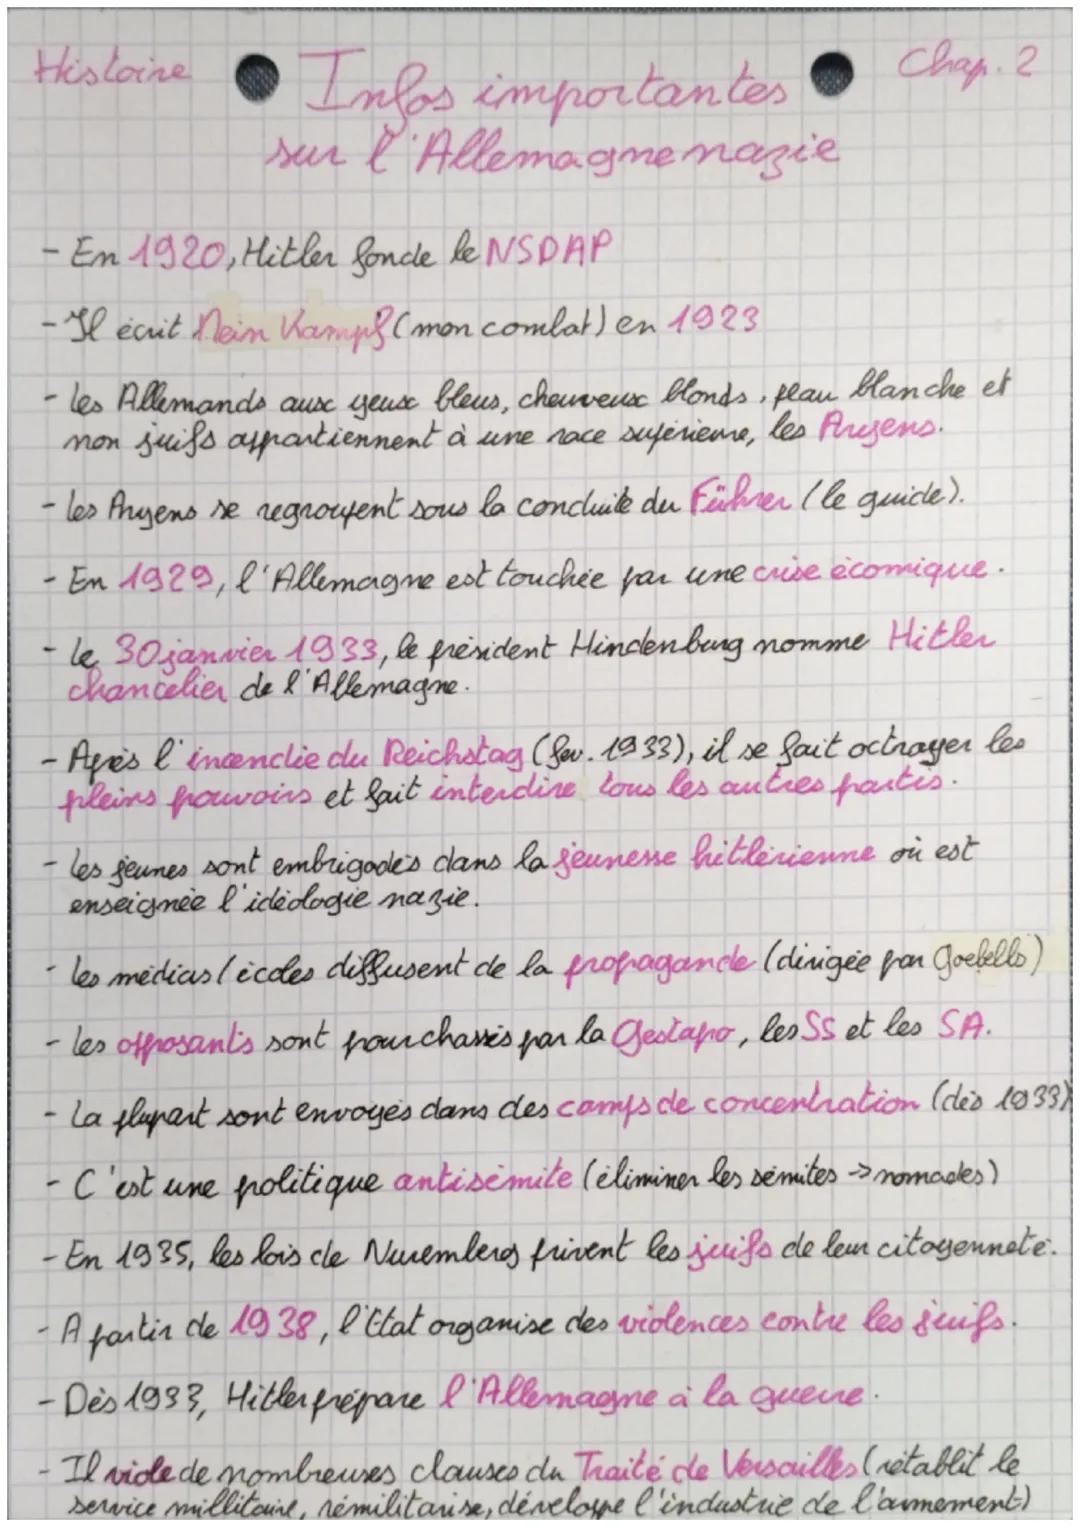 Histoire
Chap. 2
Infos importantes
sur l'Allemagne nazie
- En 1920, Hitler fonde le NSDAP
- Il écrit Mein Kampf (mon combat) en 1923
- Les Allemands aux yeux bleus, cheuveux blonds, peau blanche et
non juifs appartiennent à une race supérieure, les Aryens.
- Les Aryens se regroupent sous la conduite du Führer (le guide).
- En 1929, l'Allemagne est touchée par une crise écomique.
- Le 30 janvier 1933, le président Hindenburg nomme Hitler
chancelier de l'Allemagne.
- Après l'incendie du Reichstag (fev. 1933), il se fait octrayer les
pleins pouvoirs et fait interdire tous les autres partis.
- Les jeunes sont embrigadés dans la jeunesse hitlérienne où est
enseignée l'idéologie nazie.
- Les médias / écoles diffusent de la propagande (dirigée par Goebells)
- Les opposants sont pourchassés par la Gestapo, les SS et les SA.
- La plupart sont envoyés dans des camps de concentration (dès 1933)
- C'est une politique antisémite (éliminer les sémites -> nomades)
- En 1935, les lois de Nuremberg privent les juifs de leur citoyenneté.
- A partir de 1938, l'Etat organise des violences contre les juifs.
- Dès 1933, Hitler prépare l'Allemagne à la guerre.
- Il viole de nombreuses clauses du Traité de Versailles (rétablit le
service millitaire, rémilitarise, développe l'industrie de l'armement)